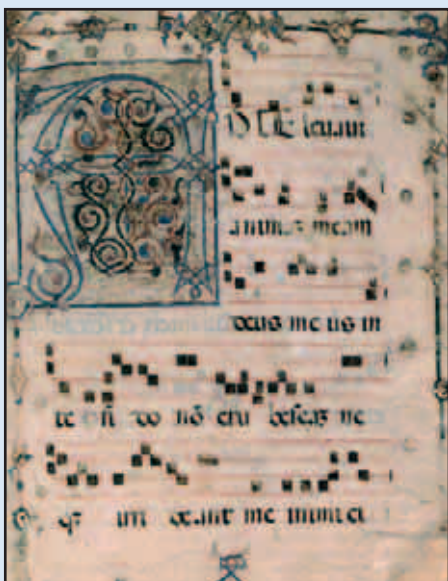 AD TE leuaui
animaz meam
deus me us in
te cōfi do nō eru bescaz ne
qz irri deant me inimici